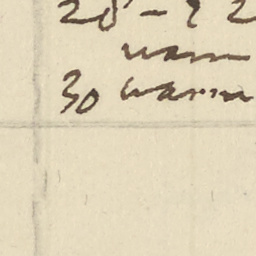 28 - 2 2
warm
30 warm